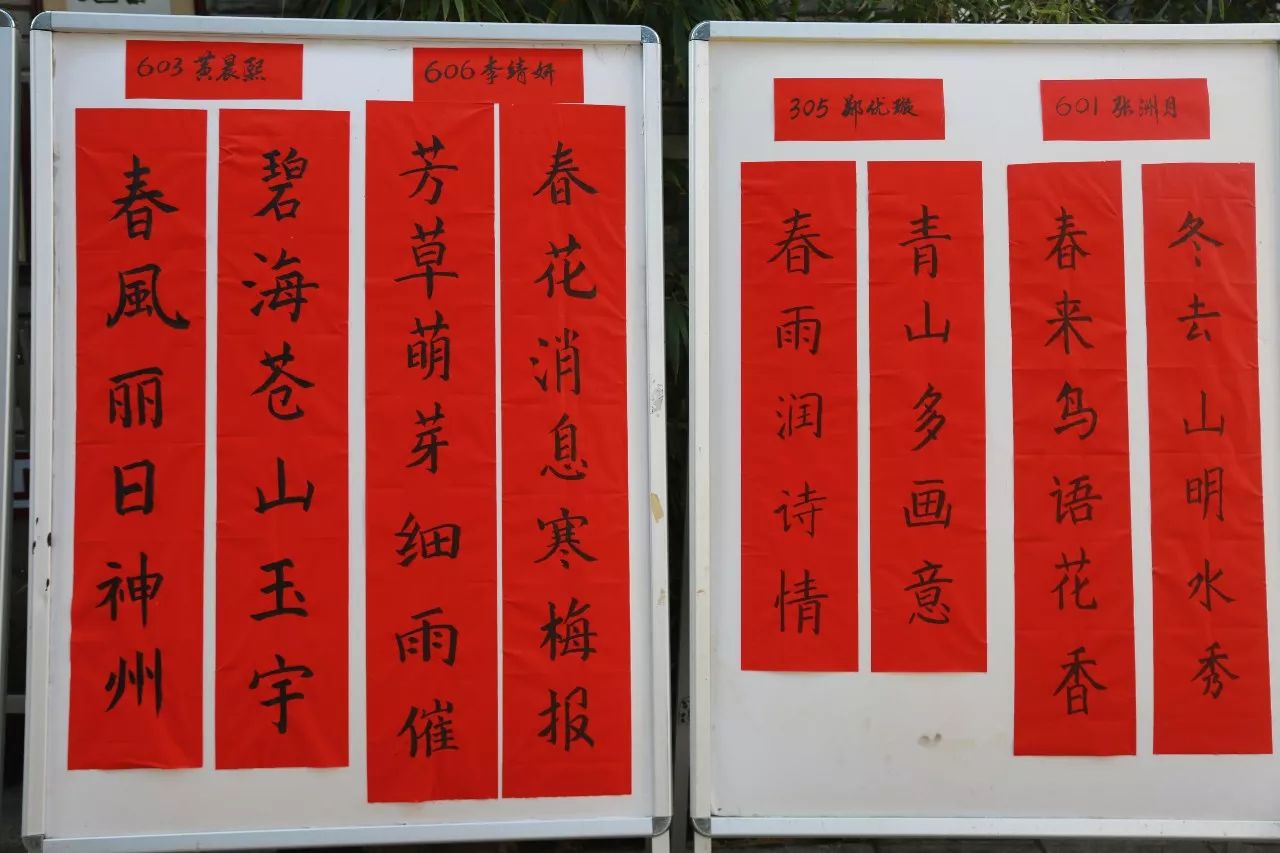 603 黄晨熙
碧海苍山玉宇
春風丽日神州
606 李靖妍
春花消息寒梅报
芳草萌芽细雨催
305 郑优璇
青山多画意
春雨润诗情
601 张洲月
冬去山明水秀
春来鸟语花香